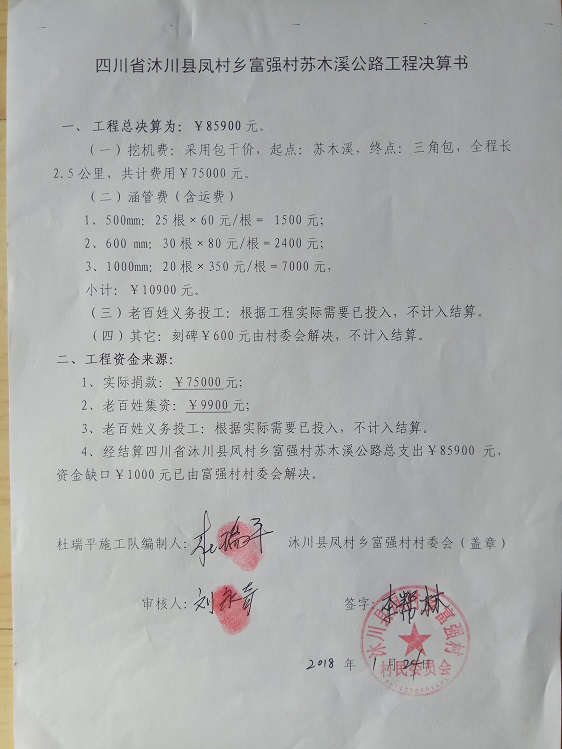 四川省沐川县凤村乡富强村苏木溪公路工程决算书
一、工程总决算为：￥85900元。
（一）挖机费：采用包干价，起点：苏木溪，终点：三角包，全程长
2.5公里，共计费用￥75000元。
（二）涵管费（含运费）
1、500mm：25根×60元/根= 1500元；
2、600 mm：30根×80元/根=2400元；
3、1000mm：20根×350元/根=7000元，
小计：￥10900元。
（三）老百姓义务投工：根据工程实际需要已投入，不计入结算。
（四）其它：刻碑￥600元由村委会解决，不计入结算。
二、工程资金来源：
1、实际捐款：￥75000元；
2、老百姓集资：￥9900元；
3、老百姓义务投工：根据实际需要已投入，不计入结算。
4、经结算四川省沐川县凤村乡富强村苏木溪公路总支出￥85900 元，
资金缺口￥1000元已由富强村村委会解决。
杜瑞平施工队编制人：杜瑞平 沐川县凤村乡富强村村委会（盖章）
审核人：刘永奇 签字：李帮林
2018 年 1 月 24日
沐川县 富强村
村民委员会